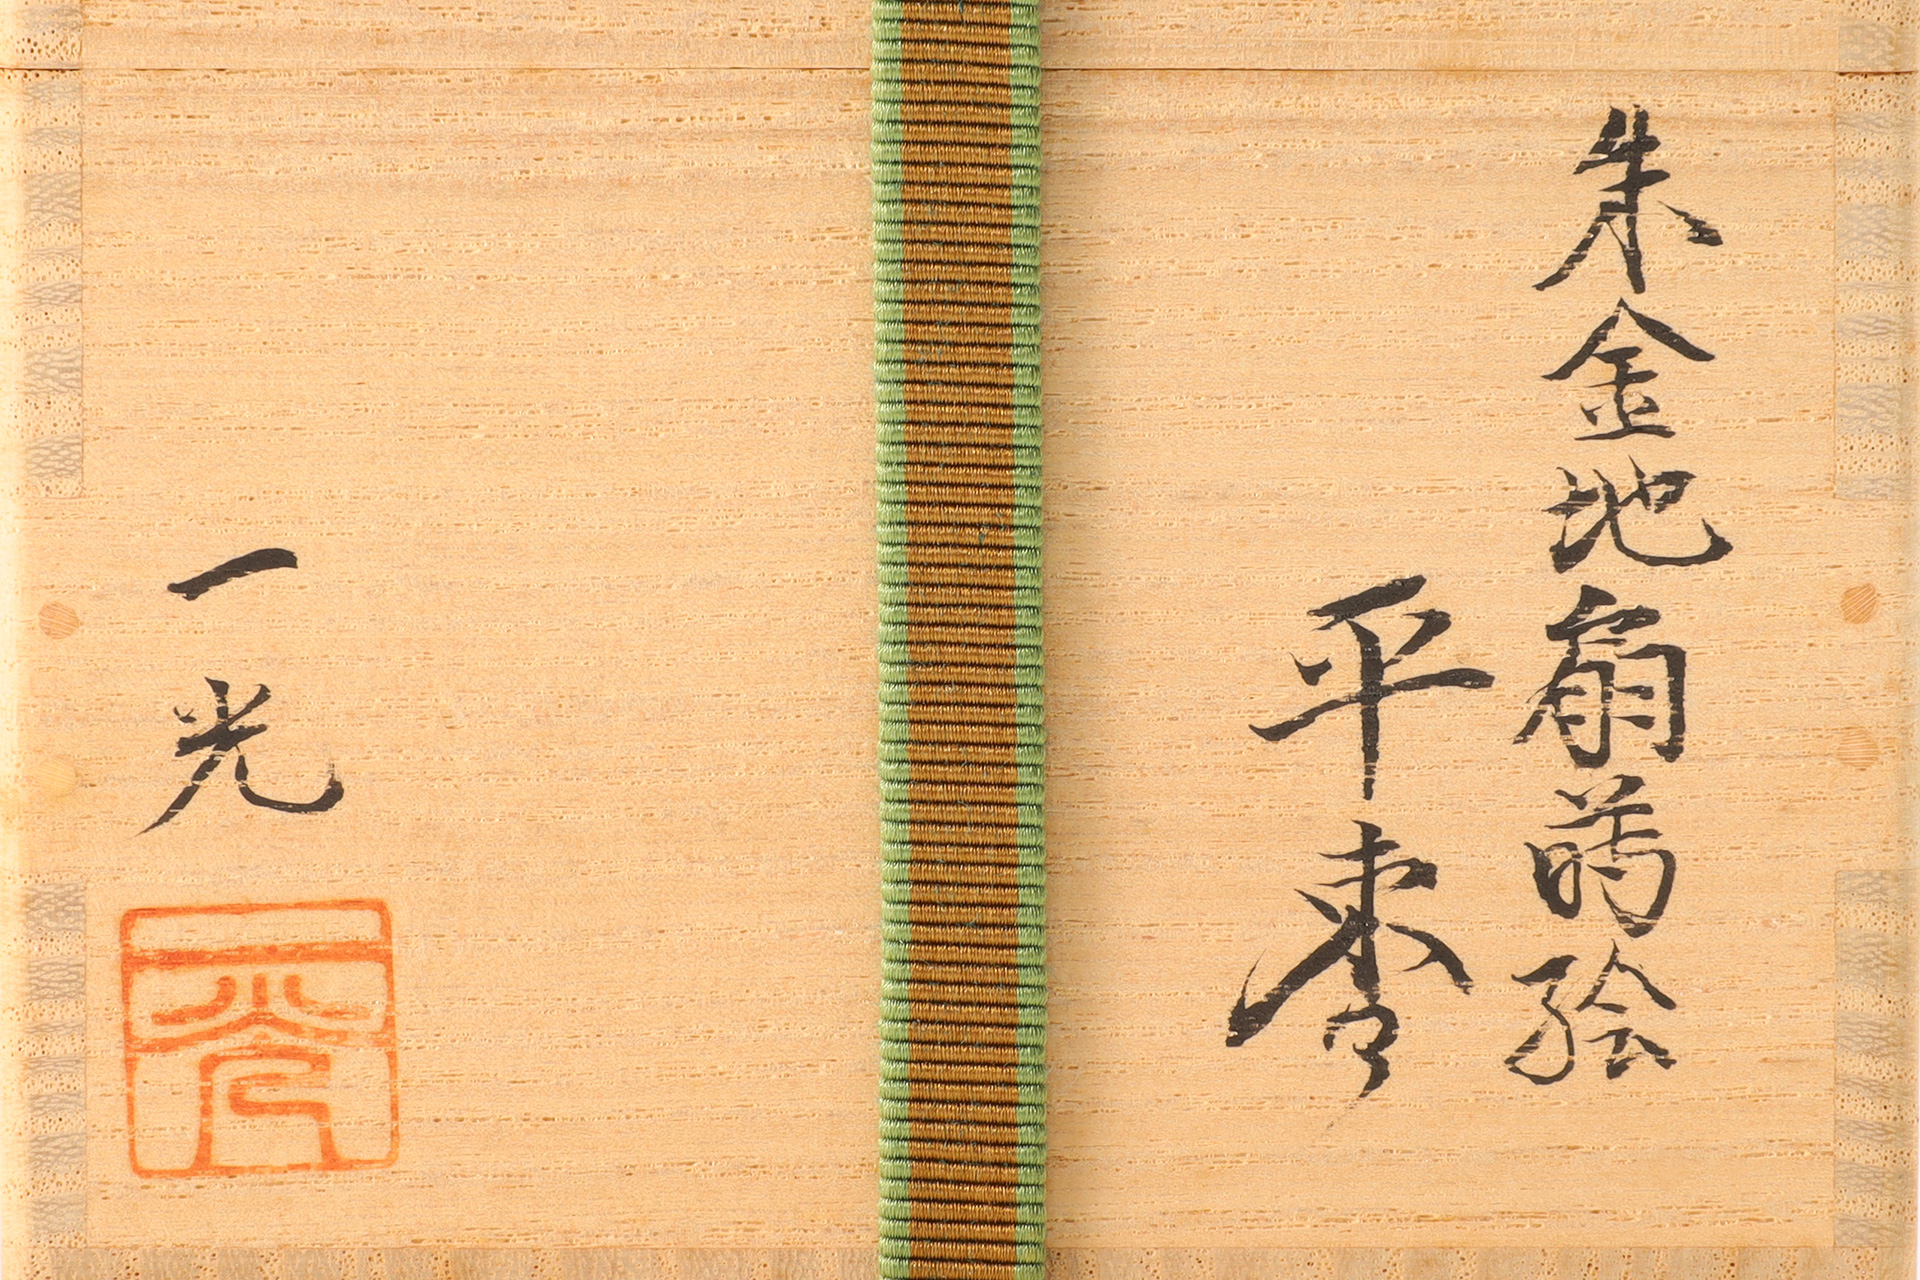 朱金地扇蒔絵
平棗
一光
一光